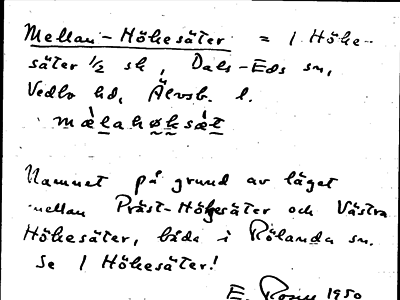 Mellan-Hökesäter = 1 Höke-
säter 1/2 sk, Dals-Eds sn,
Vedbo hd, Älvsb. l.
mæ̀lahøksæ̀t
Namnet på grund av läget
mellan Präst-Hökesäter och Västra
Hökesäter, båda i Rölanda sn.
Se 1 Hökesäter!
E. 1950